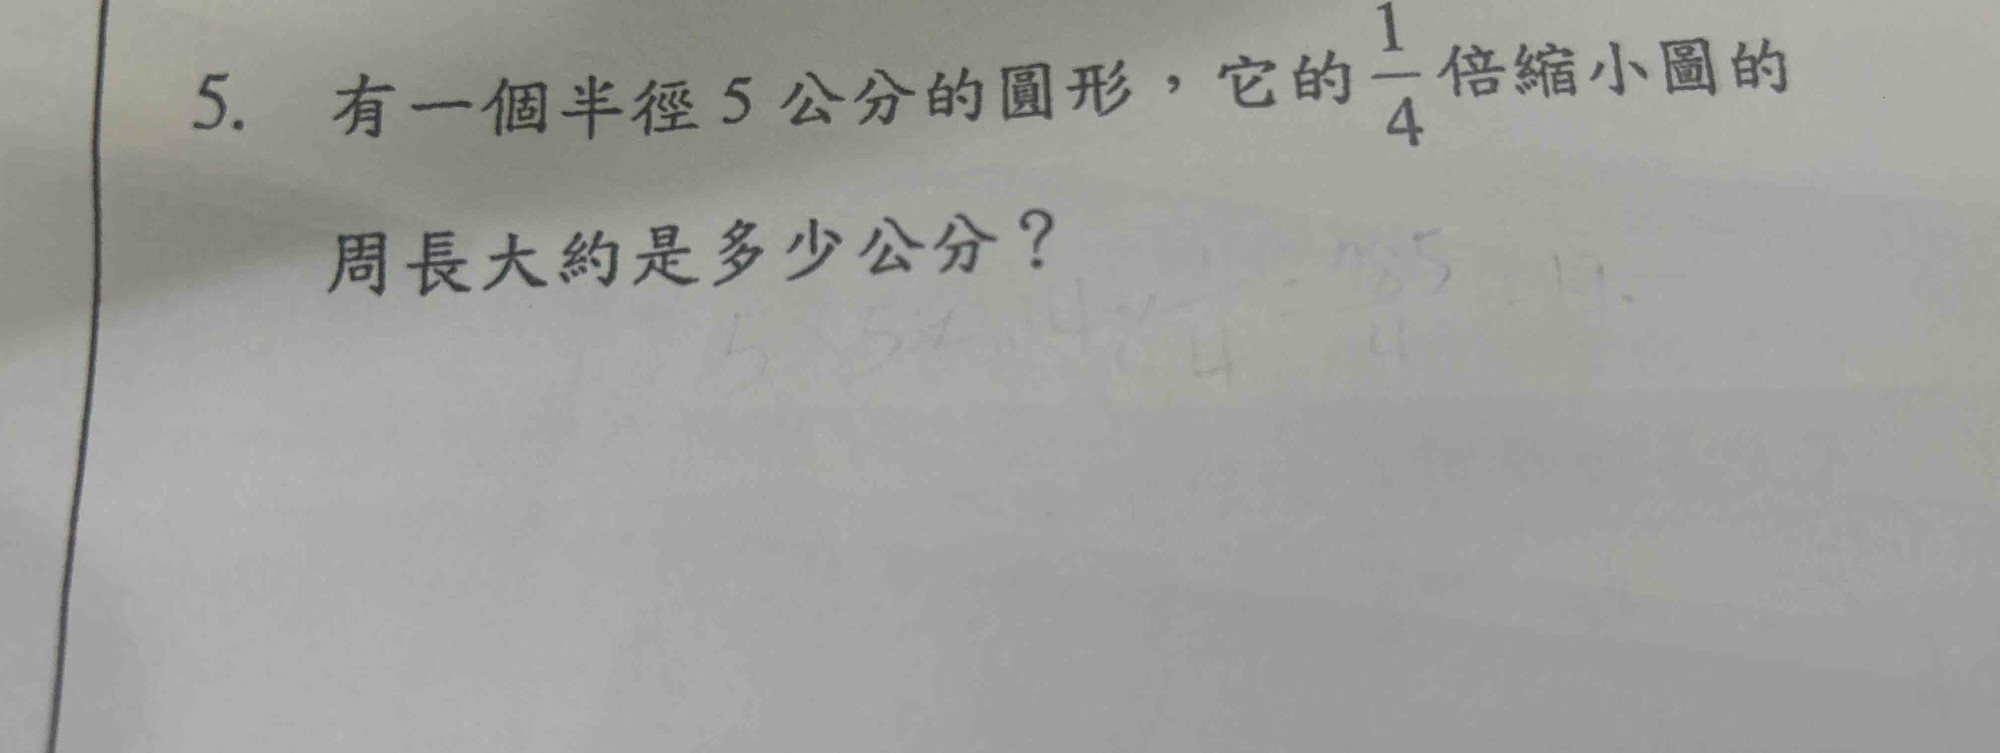 5. 有一個半徑5公分的圓形，它的1/4倍縮小圖的
周長大約是多少公分？